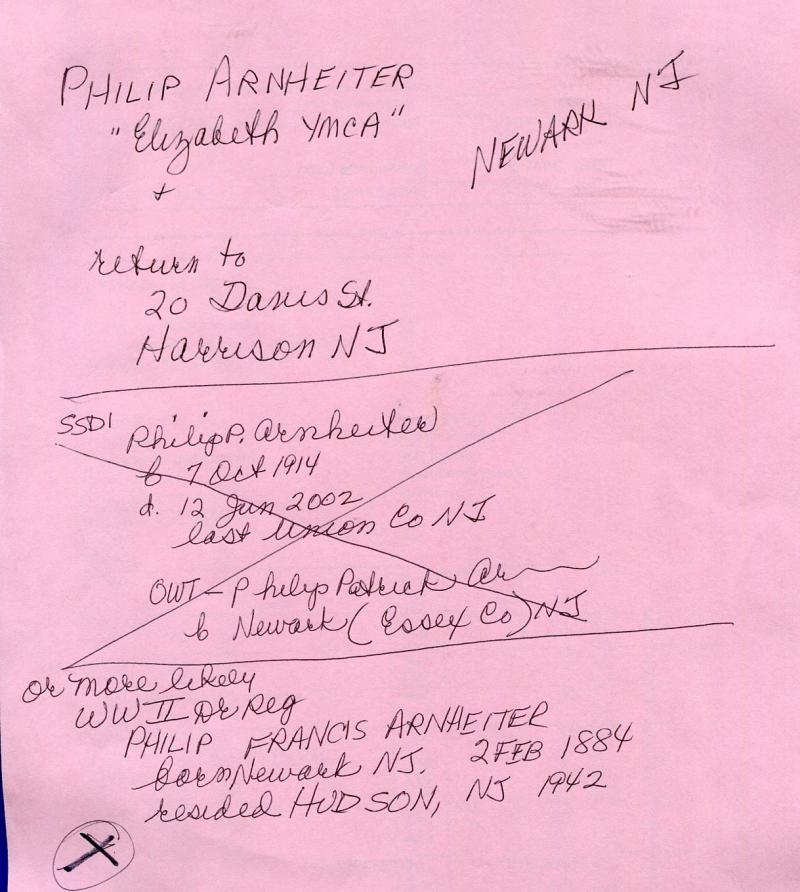 PHILIP ARNHEITER
"Elizabeth YMCA"
NEWARK NJ
+
return to
20 Davis St.
Harrison NJ
SSDI
Philip P. Arnheiter
b 7 Oct 1914
d. 12 Jun 2002
last Union Co NJ
OWI - Philip Patrick Ar
b Newark (Essex Co) NJ
or more likely
WWII Dr Reg
PHILIP FRANCIS ARNHEITER
born Newark NJ. 2 FEB 1884
resided HUDSON, NJ 1942
X